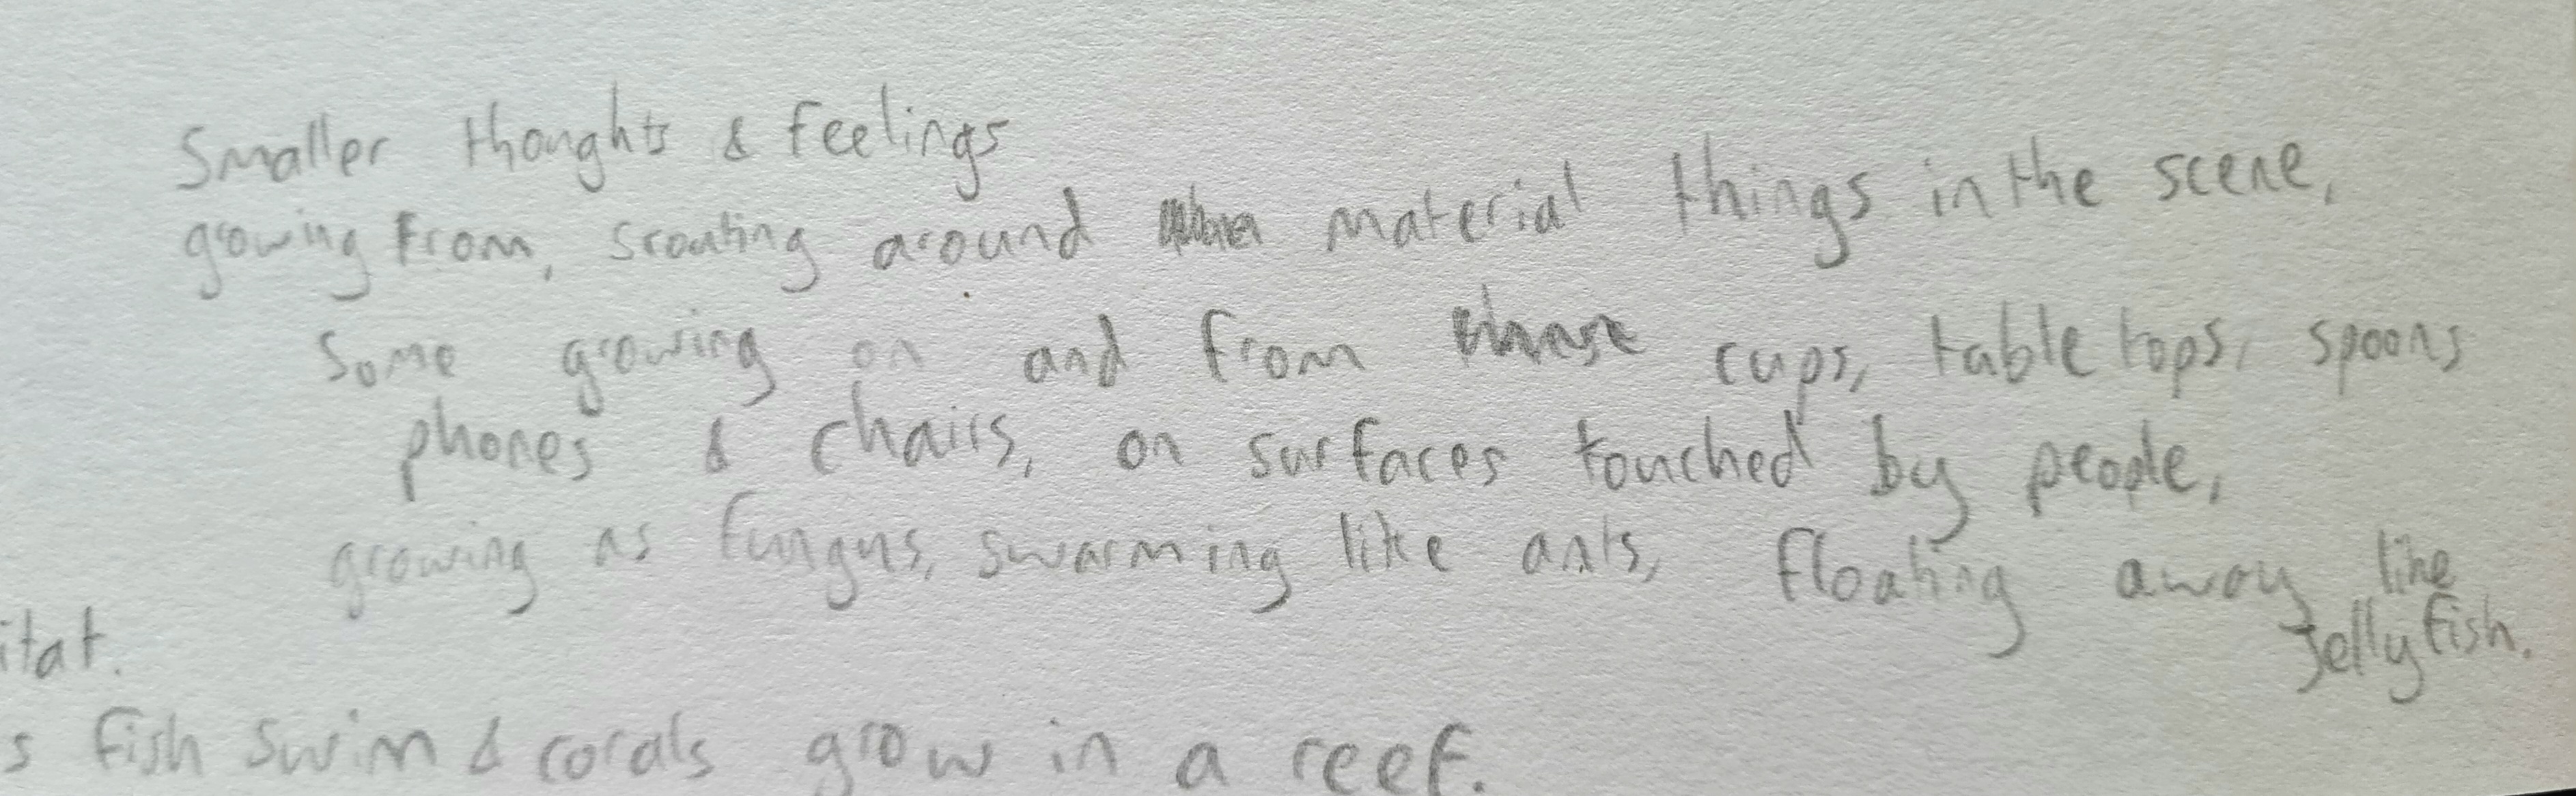 Smaller thoughts & feelings
growing from, scouting around material things in the scene,
Some growing on and from cups, table tops, spoons
phones & chairs, on surfaces touched by people,
growing as fungus, swarming like ants, floating away like
Jellyfish.
itat.
s fish swim & corals grow in a reef.